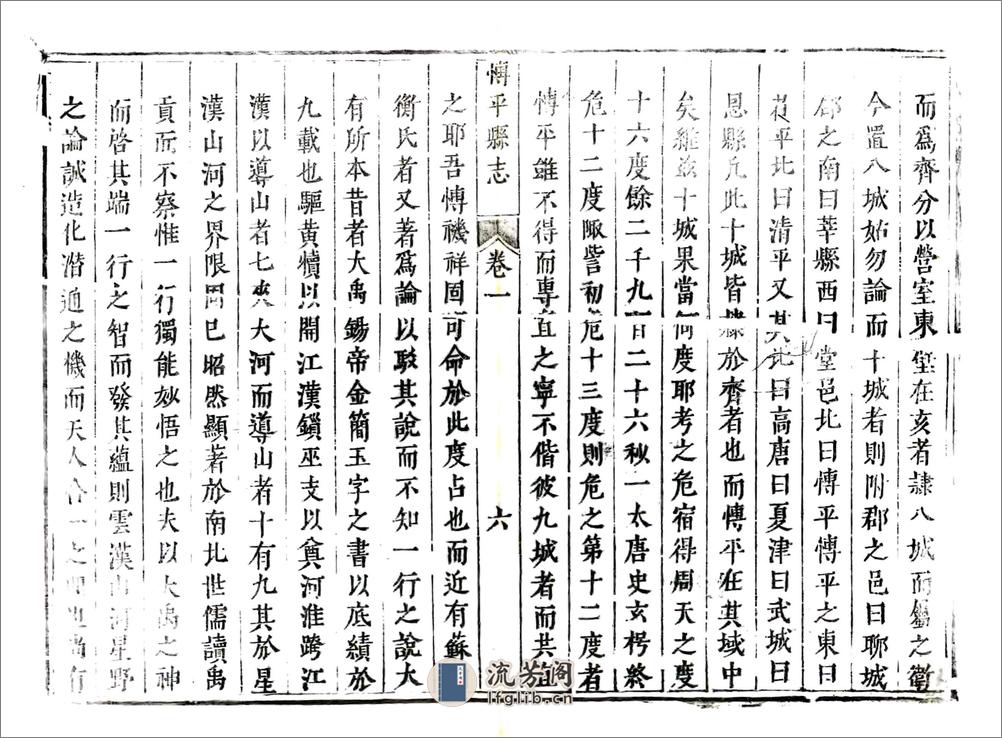 而爲齊分以營室東壁在亥者隷八城而屬之衛
今置八城姑勿論而十城者則附郡之邑曰聊城
郡之南曰莘縣西曰堂邑北曰博平博平之東曰
茌平北曰清平又其北曰高唐曰夏津曰武城曰
恩縣凡此十城皆隷於齊者也而博平在其域中
矣維玆十城果當何度耶考之危宿得周天之度
十六度餘二千九百二十六秒一太唐史玄枵終
危十二度陬訾初危十三度則危之第十二度者
博平雖不得而專直之寧不偕彼九城者而共直
博平縣志
卷一
六
之耶吾博禨祥固可命於此度占也而近有蘇
衡氏者又著爲論以駁其說而不知一行之說大
有所本昔者大禹錫帝金簡玉字之書以底績於
九載也驅黃犢以開江漢鎖巫支以奠河淮跨江
漢以導山者七夾大河而導山者十有九其於星
漢山河之界限固已昭然顯著於南北世儒讀禹
貢而不察惟一行獨能妙悟之也夫以大禹之神
而啓其端一行之智而發其蘊則雲漢山河星野
之論誠造化潛通之機而天人合一之也尚有
流芳阁
lfglib.cn